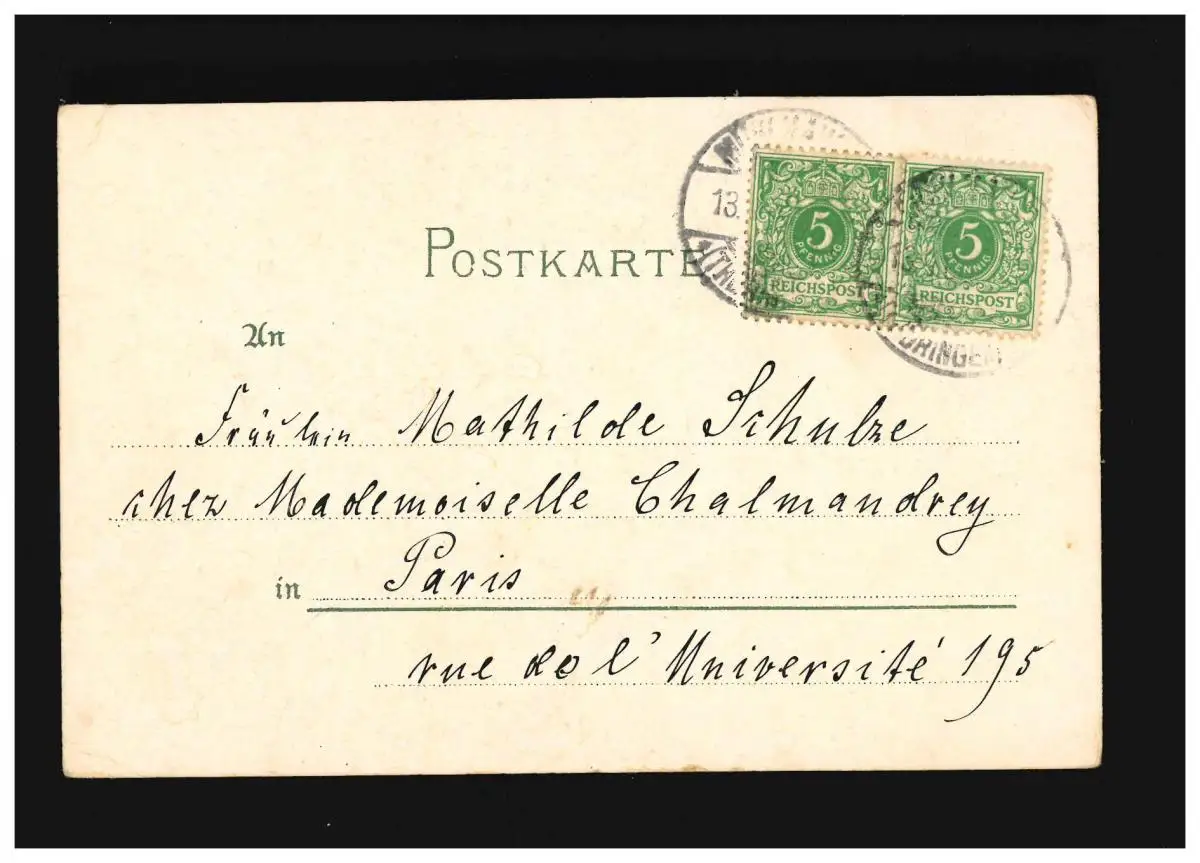 POSTKARTE
13.
5
PFENNIG
REICHSPOST
5
PFENNIG
REICHSPOST
An
Fräulein Mathilde Schulze
chez Mademoiselle Chalmandrey
in Paris
rue de l'Université 195